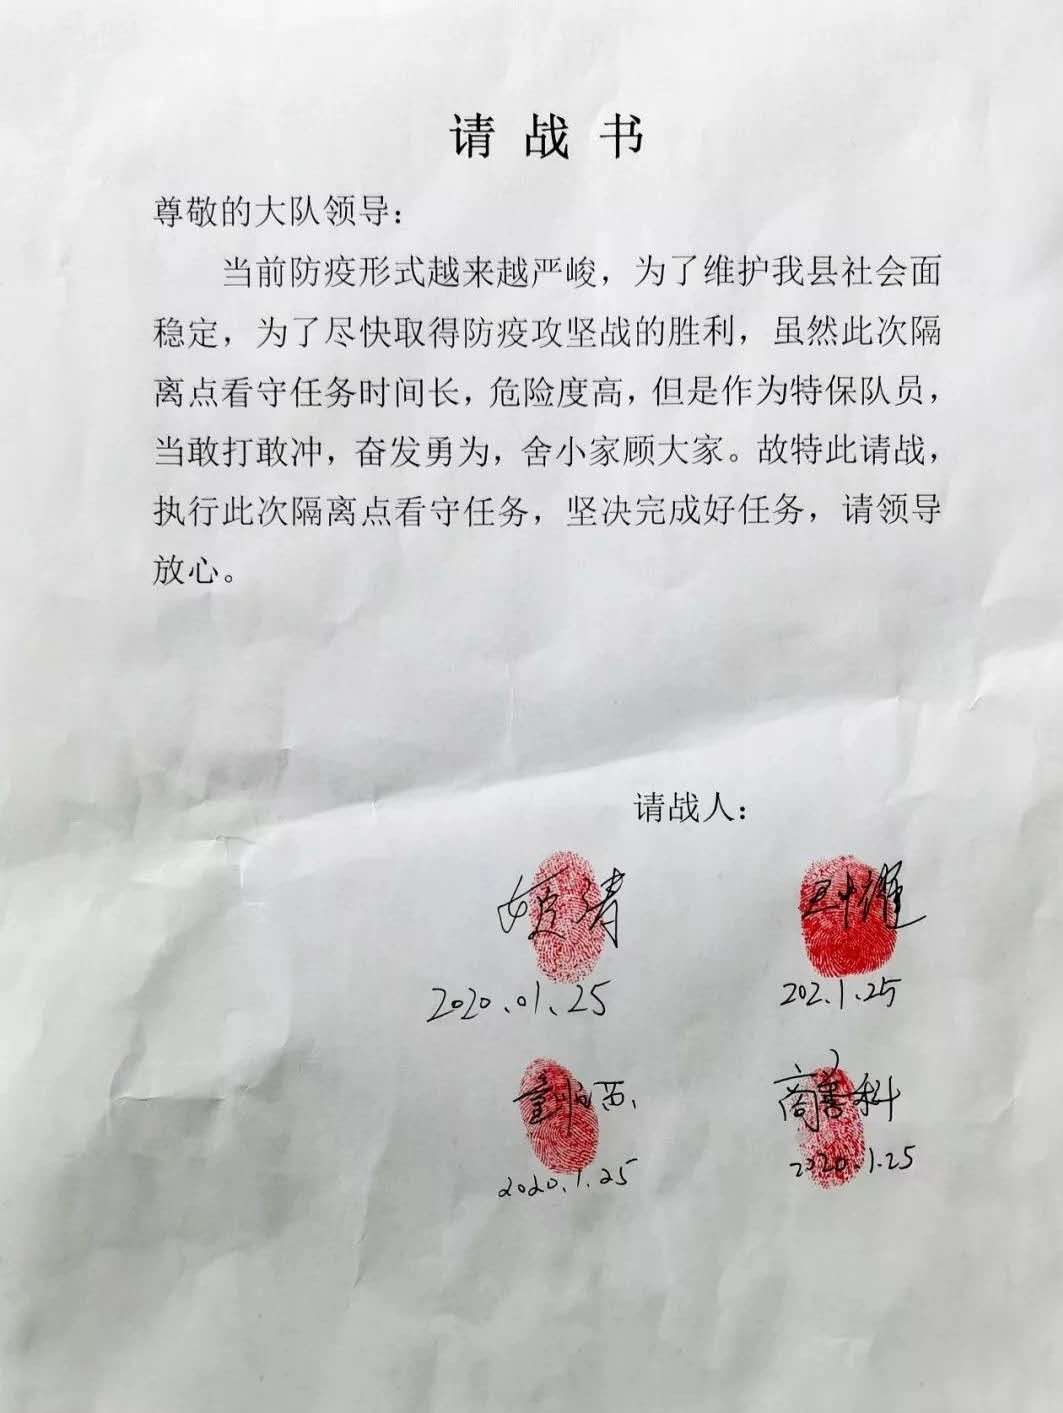 请战书
尊敬的大队领导：
当前防疫形式越来越严峻，为了维护我县社会面
稳定，为了尽快取得防疫攻坚战的胜利，虽然此次隔
离点看守任务时间长，危险度高，但是作为特保队员，
当敢打敢冲，奋发勇为，舍小家顾大家。故特此请战，
执行此次隔离点看守任务，坚决完成好任务，请领导
放心。
请战人：
姬涛
2020.01.25
202.1.25
童临西
2020.1.25
商善科
2020.1.25